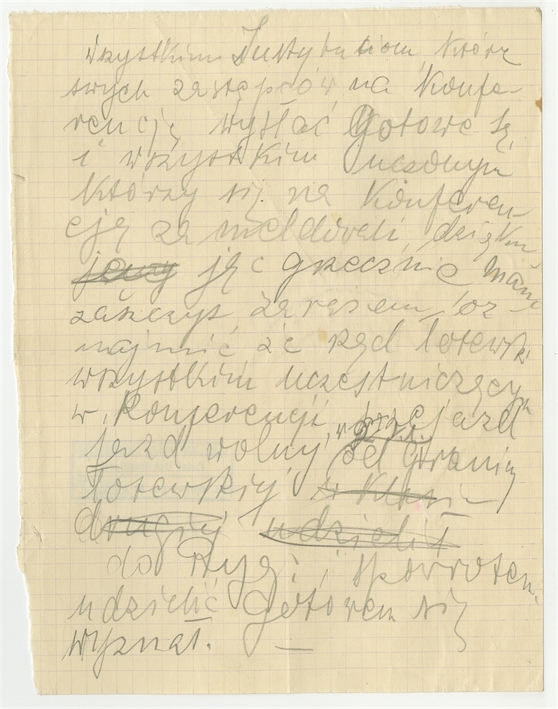 wszystkim Instytutiom którę
swych zastępców na konfe-
rencję wysłać gotowe są
i wszystkim uczonym
którzy się na Konferen-
cję zameldowali, dzięku
jąc grzecznie mam
zaszczyt zarazem oz-
najmić że rząd łotewski
wszystkim uczestniczący
w Konferencji przejazd
wolny od Granicy
Łotewskiej
udzielił
do Rygi i spowrotem
udzielić gotowem się
wyznał. —